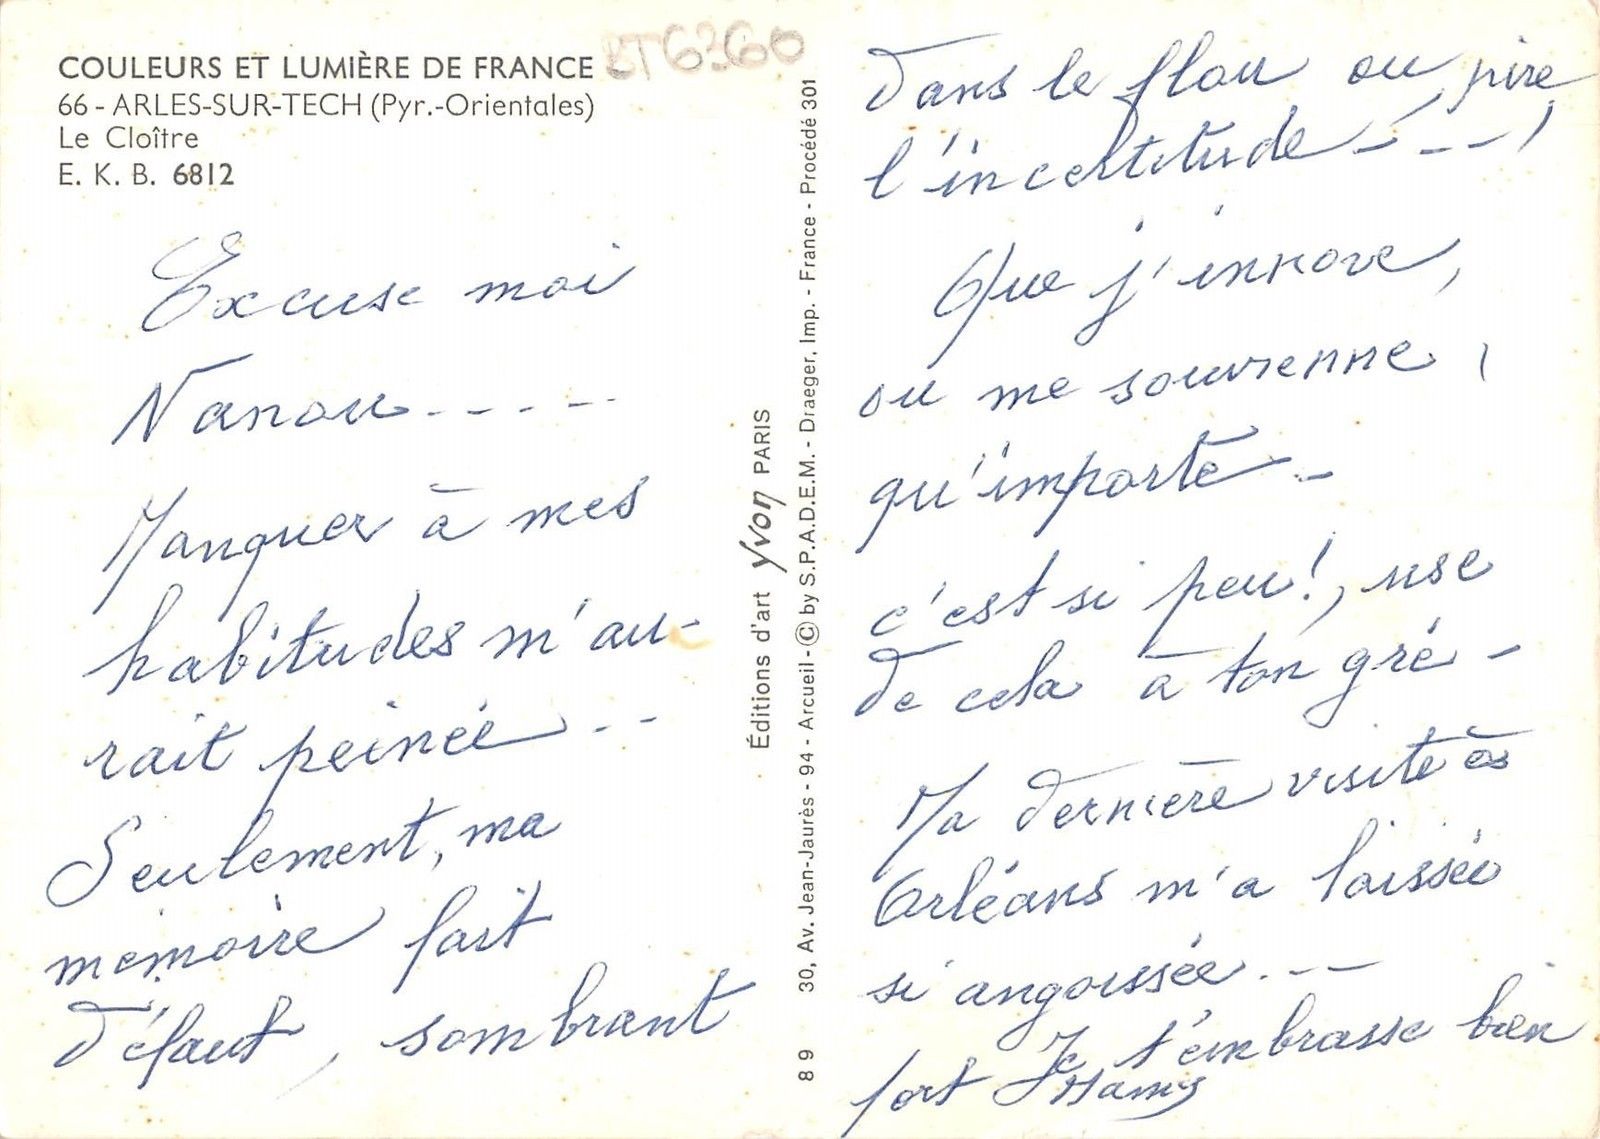 COULEURS ET LUMIÈRE DE FRANCE
66 - ARLES-SUR-TECH (Pyr.-Orientales)
Le Cloître
E. K. B. 6812
Excuse moi
Nanou - - - - -
Manquer à mes
habitudes m'au-
rait peinée - -
Seulement, ma
mémoire fait
défaut, sombrant
Éditions d'art Yvon PARIS
30, Av. Jean-Jaurès - 94 - Arcueil - © by S.P.A.D.E.M. - Draeger, Imp. - France - Procédé 301
8 9
RT6360
dans le flou ou pire
l'incertitude - - - !
Que j'innove,
ou me souvienne,
qu'importe - -
c'est si peu!, use
de cela à ton gré -
Ma dernière visite à
Orléans m'a laissée
si angoissée - - -
Je t'embrasse bien
fort Mamy